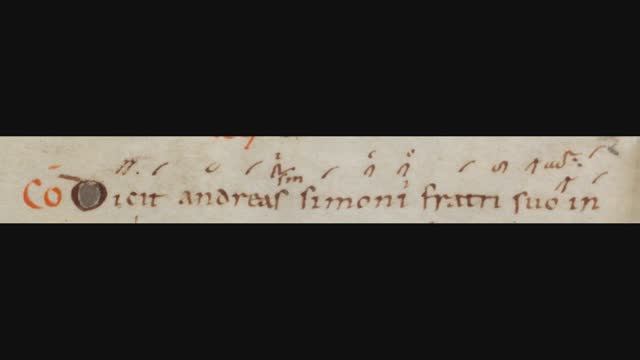 Cō Dicit andreas simoni fratri suo in